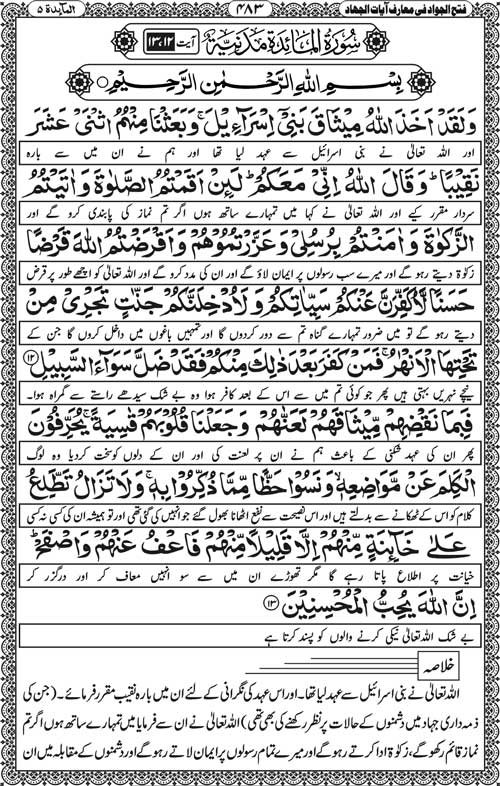 المآئدۃ ۵ ۴۸۳ فتح الجواد فی معارف آیات الجہاد
سُوْرَةُ الْمَائِدَةِ مَدَنِيَّةٌ آیت ۱۳،۱۲
بِسْمِ اللهِ الرَّحْمٰنِ الرَّحِيْمِ
وَلَقَدْ اَخَذَ اللهُ مِيْثَاقَ بَنِيْٓ اِسْرَآءِيْلَ ۚ وَبَعَثْنَا مِنْهُمُ اثْنَيْ عَشَرَ
اور اللہ تعالیٰ نے بنی اسرائیل سے عہد لیا تھا اور ہم نے ان میں سے بارہ
نَقِيْبًا ؕ وَقَالَ اللهُ اِنِّيْ مَعَكُمْ ؕ لَئِنْ اَقَمْتُمُ الصَّلٰوةَ وَاٰتَيْتُمُ
سردار مقرر کیے اور اللہ تعالیٰ نے کہا میں تمہارے ساتھ ہوں اگر تم نماز کی پابندی کرو گے اور
الزَّكٰوةَ وَاٰمَنْتُمْ بِرُسُلِيْ وَعَزَّرْتُمُوْهُمْ وَاَقْرَضْتُمُ اللهَ قَرْضًا
زکوٰۃ دیتے رہو گے اور میرے سب رسولوں پر ایمان لاؤ گے اور ان کی مدد کرو گے اور اللہ تعالیٰ کو اچھے طور پر قرض
حَسَنًا لَّاُكَفِّرَنَّ عَنْكُمْ سَيِّاٰتِكُمْ وَلَاُدْخِلَنَّكُمْ جَنّٰتٍ تَجْرِيْ مِنْ
دیتے رہو گے تو میں ضرور تمہارے گناہ تم سے دور کردوں گا اور تمہیں باغوں میں داخل کروں گا جن کے
تَحْتِهَا الْاَنْهٰرُ ۚ فَمَنْ كَفَرَ بَعْدَ ذٰلِكَ مِنْكُمْ فَقَدْ ضَلَّ سَوَآءَ السَّبِيْلِ ۱۲
نیچے نہریں بہتی ہیں پھر جو کوئی تم میں سے اس کے بعد کافر ہوا وہ بے شک سیدھے راستے سے گمراہ ہوا۔
فَبِمَا نَقْضِهِمْ مِّيْثَاقَهُمْ لَعَنّٰهُمْ وَجَعَلْنَا قُلُوْبَهُمْ قٰسِيَةً ۚ يُحَرِّفُوْنَ
پھر ان کی عہد شکنی کے باعث ہم نے ان پر لعنت کی اور ان کے دلوں کو سخت کردیا وہ لوگ
الْكَلِمَ عَنْ مَّوَاضِعِهٖ ۙ وَنَسُوْا حَظًّا مِّمَّا ذُكِّرُوْا بِهٖ ۚ وَلَا تَزَالُ تَطَّلِعُ
کلام کو اس کے ٹھکانے سے بدلتے ہیں اور اس نصیحت سے نفع اٹھانا بھول گئے جو انہیں کی گئی تھی اور تو ہمیشہ ان کی کسی نہ کسی
عَلٰى خَآئِنَةٍ مِّنْهُمْ اِلَّا قَلِيْلًا مِّنْهُمْ فَاعْفُ عَنْهُمْ وَاصْفَحْ ؕ
خیانت پر اطلاع پاتا رہے گا مگر تھوڑے ان میں سے سو انہیں معاف کر اور درگزر کر
اِنَّ اللهَ يُحِبُّ الْمُحْسِنِيْنَ ۱۳
بے شک اللہ تعالیٰ نیکی کرنے والوں کو پسند کرتا ہے
خلاصہ
اللہ تعالیٰ نے بنی اسرائیل سے عہد لیا تھا۔ اور اس عہد کی نگرانی کے لئے ان میں بارہ نقیب مقرر فرمائے۔ (جن کی
ذمہ داری جہاد میں دشمنوں کے حالات پر نظر رکھنے کی بھی تھی) اللہ تعالیٰ نے ان سے فرمایا میں تمہارے ساتھ ہوں اگر تم
نماز قائم رکھو گے، زکوٰۃ ادا کرتے رہو گے اور میرے تمام رسولوں پر ایمان لاتے رہو گے اور دشمنوں کے مقابلہ میں ان